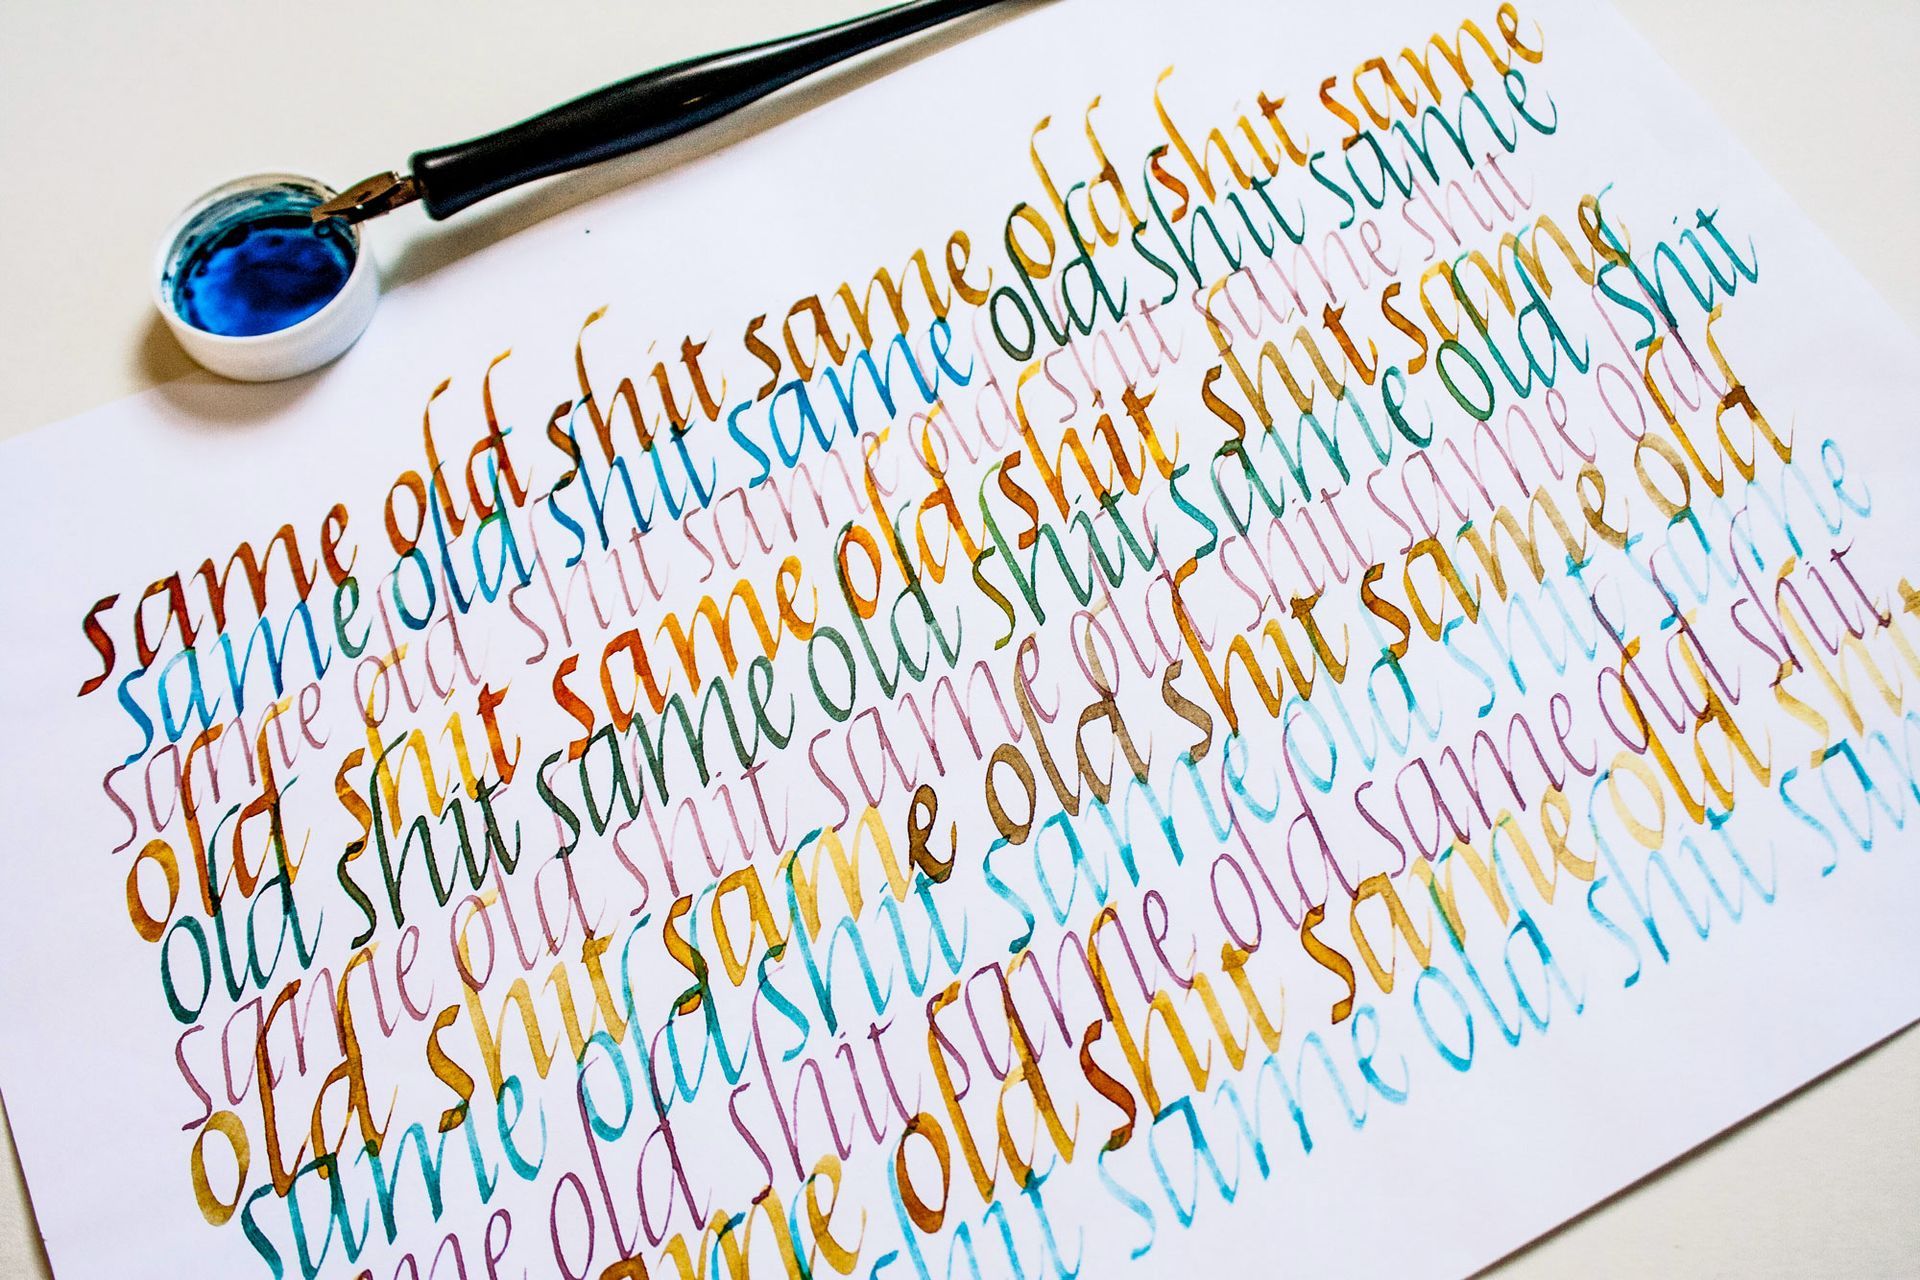 same old shit same old shit same
same old shit same old shit same
same old shit same old shit same shit
old shit same old shit shit same
old shit same old shit same old shit
same old shit same old shit same old
old shit same old shit same old
same old shit same old shit same
me old shit same old same old shit
ame old shit same old shit
shit same old shit sam